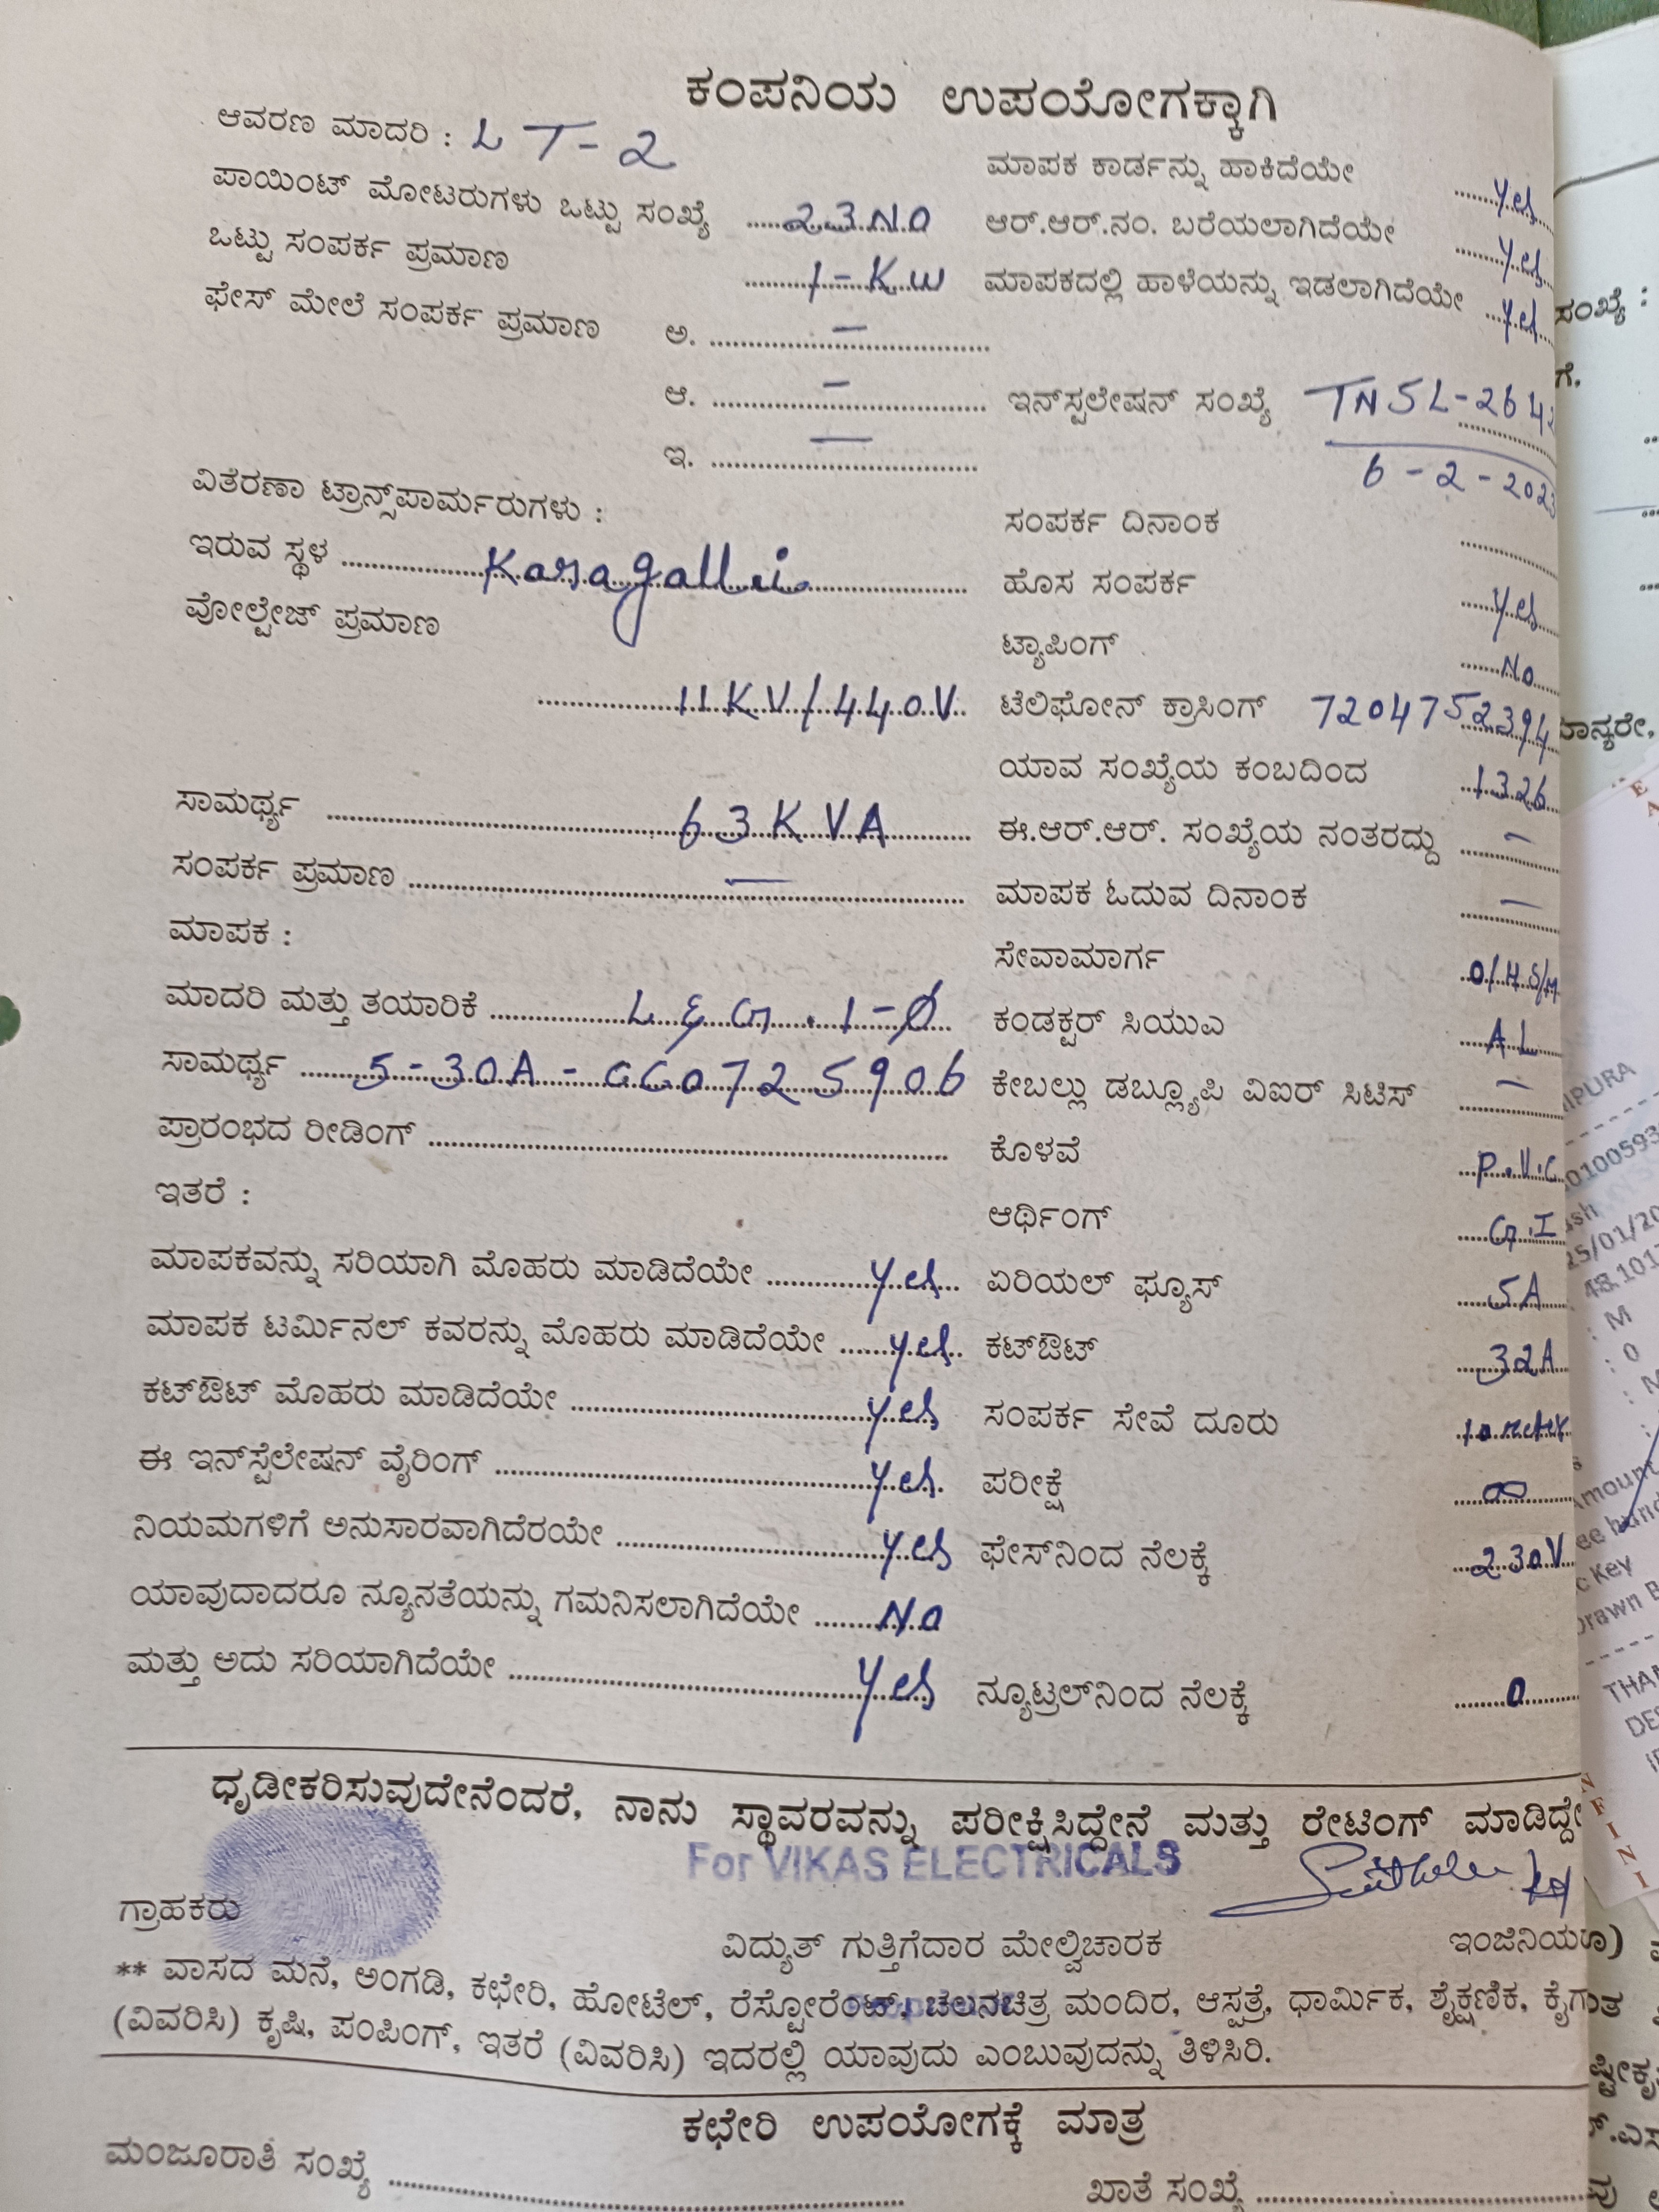 ಕಂಪನಿಯ ಉಪಯೋಗಕ್ಕಾಗಿ
ಆವರಣ ಮಾದರಿ : LT-2
ಪಾಯಿಂಟ್ ಮೋಟರುಗಳು ಒಟ್ಟು ಸಂಖ್ಯೆ 23 NO
ಒಟ್ಟು ಸಂಪರ್ಕ ಪ್ರಮಾಣ 1-KW
ಫೇಸ್ ಮೇಲೆ ಸಂಪರ್ಕ ಪ್ರಮಾಣ ಅ. —
ಆ. —
ಇ. —
ವಿತೆರಣಾ ಟ್ರಾನ್ಸ್‌ಪಾರ್ಮರುಗಳು :
ಇರುವ ಸ್ಥಳ Karagalli
ವೋಲ್ಟೇಜ್ ಪ್ರಮಾಣ
11KV/440V
ಸಾಮರ್ಥ್ಯ 63KVA
ಸಂಪರ್ಕ ಪ್ರಮಾಣ —
ಮಾಪಕ :
ಮಾದರಿ ಮತ್ತು ತಯಾರಿಕೆ L&G . 1-Ø
ಸಾಮರ್ಥ್ಯ 5-30A - GG0725906
ಪ್ರಾರಂಭದ ರೀಡಿಂಗ್
ಇತರೆ :
ಮಾಪಕವನ್ನು ಸರಿಯಾಗಿ ಮೊಹರು ಮಾಡಿದೆಯೇ Yes
ಮಾಪಕ ಟರ್ಮಿನಲ್ ಕವರನ್ನು ಮೊಹರು ಮಾಡಿದೆಯೇ Yes
ಕಟ್‌ಔಟ್ ಮೊಹರು ಮಾಡಿದೆಯೇ Yes
ಈ ಇನ್‌ಸ್ಪೆಲೇಷನ್ ವೈರಿಂಗ್ Yes.
ನಿಯಮಗಳಿಗೆ ಅನುಸಾರವಾಗಿದೆರಯೇ Yes
ಯಾವುದಾದರೂ ನ್ಯೂನತೆಯನ್ನು ಗಮನಿಸಲಾಗಿದೆಯೇ No
ಮತ್ತು ಅದು ಸರಿಯಾಗಿದೆಯೇ Yes
ಮಾಪಕ ಕಾರ್ಡನ್ನು ಹಾಕಿದೆಯೇ Yes
ಆರ್.ಆರ್.ನಂ. ಬರೆಯಲಾಗಿದೆಯೇ Yes
ಮಾಪಕದಲ್ಲಿ ಹಾಳೆಯನ್ನು ಇಡಲಾಗಿದೆಯೇ Yes
ಇನ್‌ಸ್ಪಲೇಷನ್ ಸಂಖ್ಯೆ TNSL-2642
6-2-2023
ಸಂಪರ್ಕ ದಿನಾಂಕ
ಹೊಸ ಸಂಪರ್ಕ Yes
ಟ್ಯಾಪಿಂಗ್ No
ಟೆಲಿಫೋನ್ ಕ್ರಾಸಿಂಗ್ 7204752394
ಯಾವ ಸಂಖ್ಯೆಯ ಕಂಬದಿಂದ 1326
ಈ.ಆರ್.ಆರ್. ಸಂಖ್ಯೆಯ ನಂತರದ್ದು —
ಮಾಪಕ ಓದುವ ದಿನಾಂಕ —
ಸೇವಾಮಾರ್ಗ O/H S/M
ಕಂಡಕ್ಟರ್ ಸಿಯುಎ AL
ಕೇಬಲ್ಲು ಡಬ್ಲ್ಯೂಪಿ ವಿಐರ್ ಸಿಟಿಸ್ —
ಕೊಳವೆ P.V.C
ಆರ್ಥಿಂಗ್ G.I
ಏರಿಯಲ್ ಫ್ಯೂಸ್ 5A
ಕಟ್‌ಔಟ್ 32A
ಸಂಪರ್ಕ ಸೇವೆ ದೂರು 10 meter
ಪರೀಕ್ಷೆ ∞
ಫೇಸ್‌ನಿಂದ ನೆಲಕ್ಕೆ 230V
ನ್ಯೂಟ್ರಲ್‌ನಿಂದ ನೆಲಕ್ಕೆ 0
ಧೃಡೀಕರಿಸುವುದೇನೆಂದರೆ, ನಾನು ಸ್ಥಾವರವನ್ನು ಪರೀಕ್ಷಿಸಿದ್ದೇನೆ ಮತ್ತು ರೇಟಿಂಗ್ ಮಾಡಿದ್ದೇ
For VIKAS ELECTRICALS
ಗ್ರಾಹಕರು
ವಿದ್ಯುತ್ ಗುತ್ತಿಗೆದಾರ ಮೇಲ್ವಿಚಾರಕ ಇಂಜಿನಿಯರ
** ವಾಸದ ಮನೆ, ಅಂಗಡಿ, ಕಛೇರಿ, ಹೋಟೆಲ್, ರೆಸ್ಟೋರೆಂಟ್, ಚಲನಚಿತ್ರ ಮಂದಿರ, ಆಸ್ಪತ್ರೆ, ಧಾರ್ಮಿಕ, ಶೈಕ್ಷಣಿಕ, ಕೈಗ
(ವಿವರಿಸಿ) ಕೃಷಿ, ಪಂಪಿಂಗ್, ಇತರೆ (ವಿವರಿಸಿ) ಇದರಲ್ಲಿ ಯಾವುದು ಎಂಬುವುದನ್ನು ತಿಳಿಸಿರಿ.
ಕಛೇರಿ ಉಪಯೋಗಕ್ಕೆ ಮಾತ್ರ
ಮಂಜೂರಾತಿ ಸಂಖ್ಯೆ
ಖಾತೆ ಸಂಖ್ಯೆ
ಸಂಖ್ಯೆ :
ಗೆ.
25/01/20
: M
: 0
Key